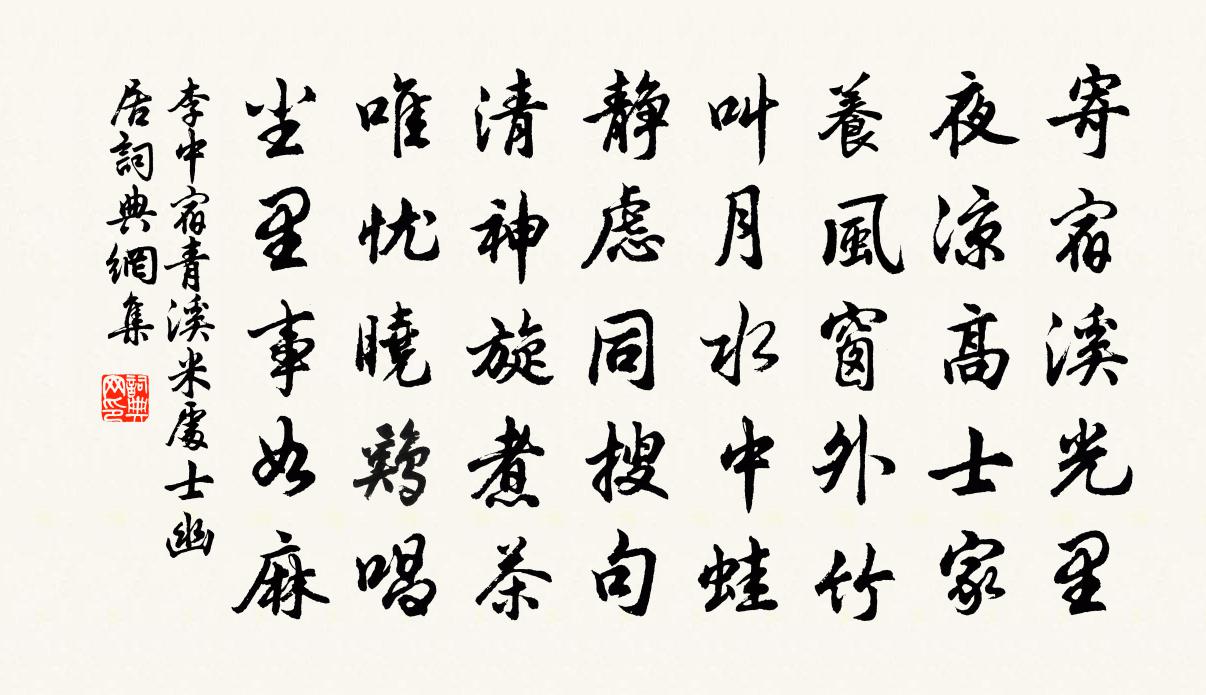 寄宿溪光里
夜涼高士家
養風窗外竹
叫月水中蛙
静慮同搜句
清神旋煮茶
唯忧曉鷄唱
尘里事如麻
李中宿青溪米處士幽
居詞典網集
詞典网印